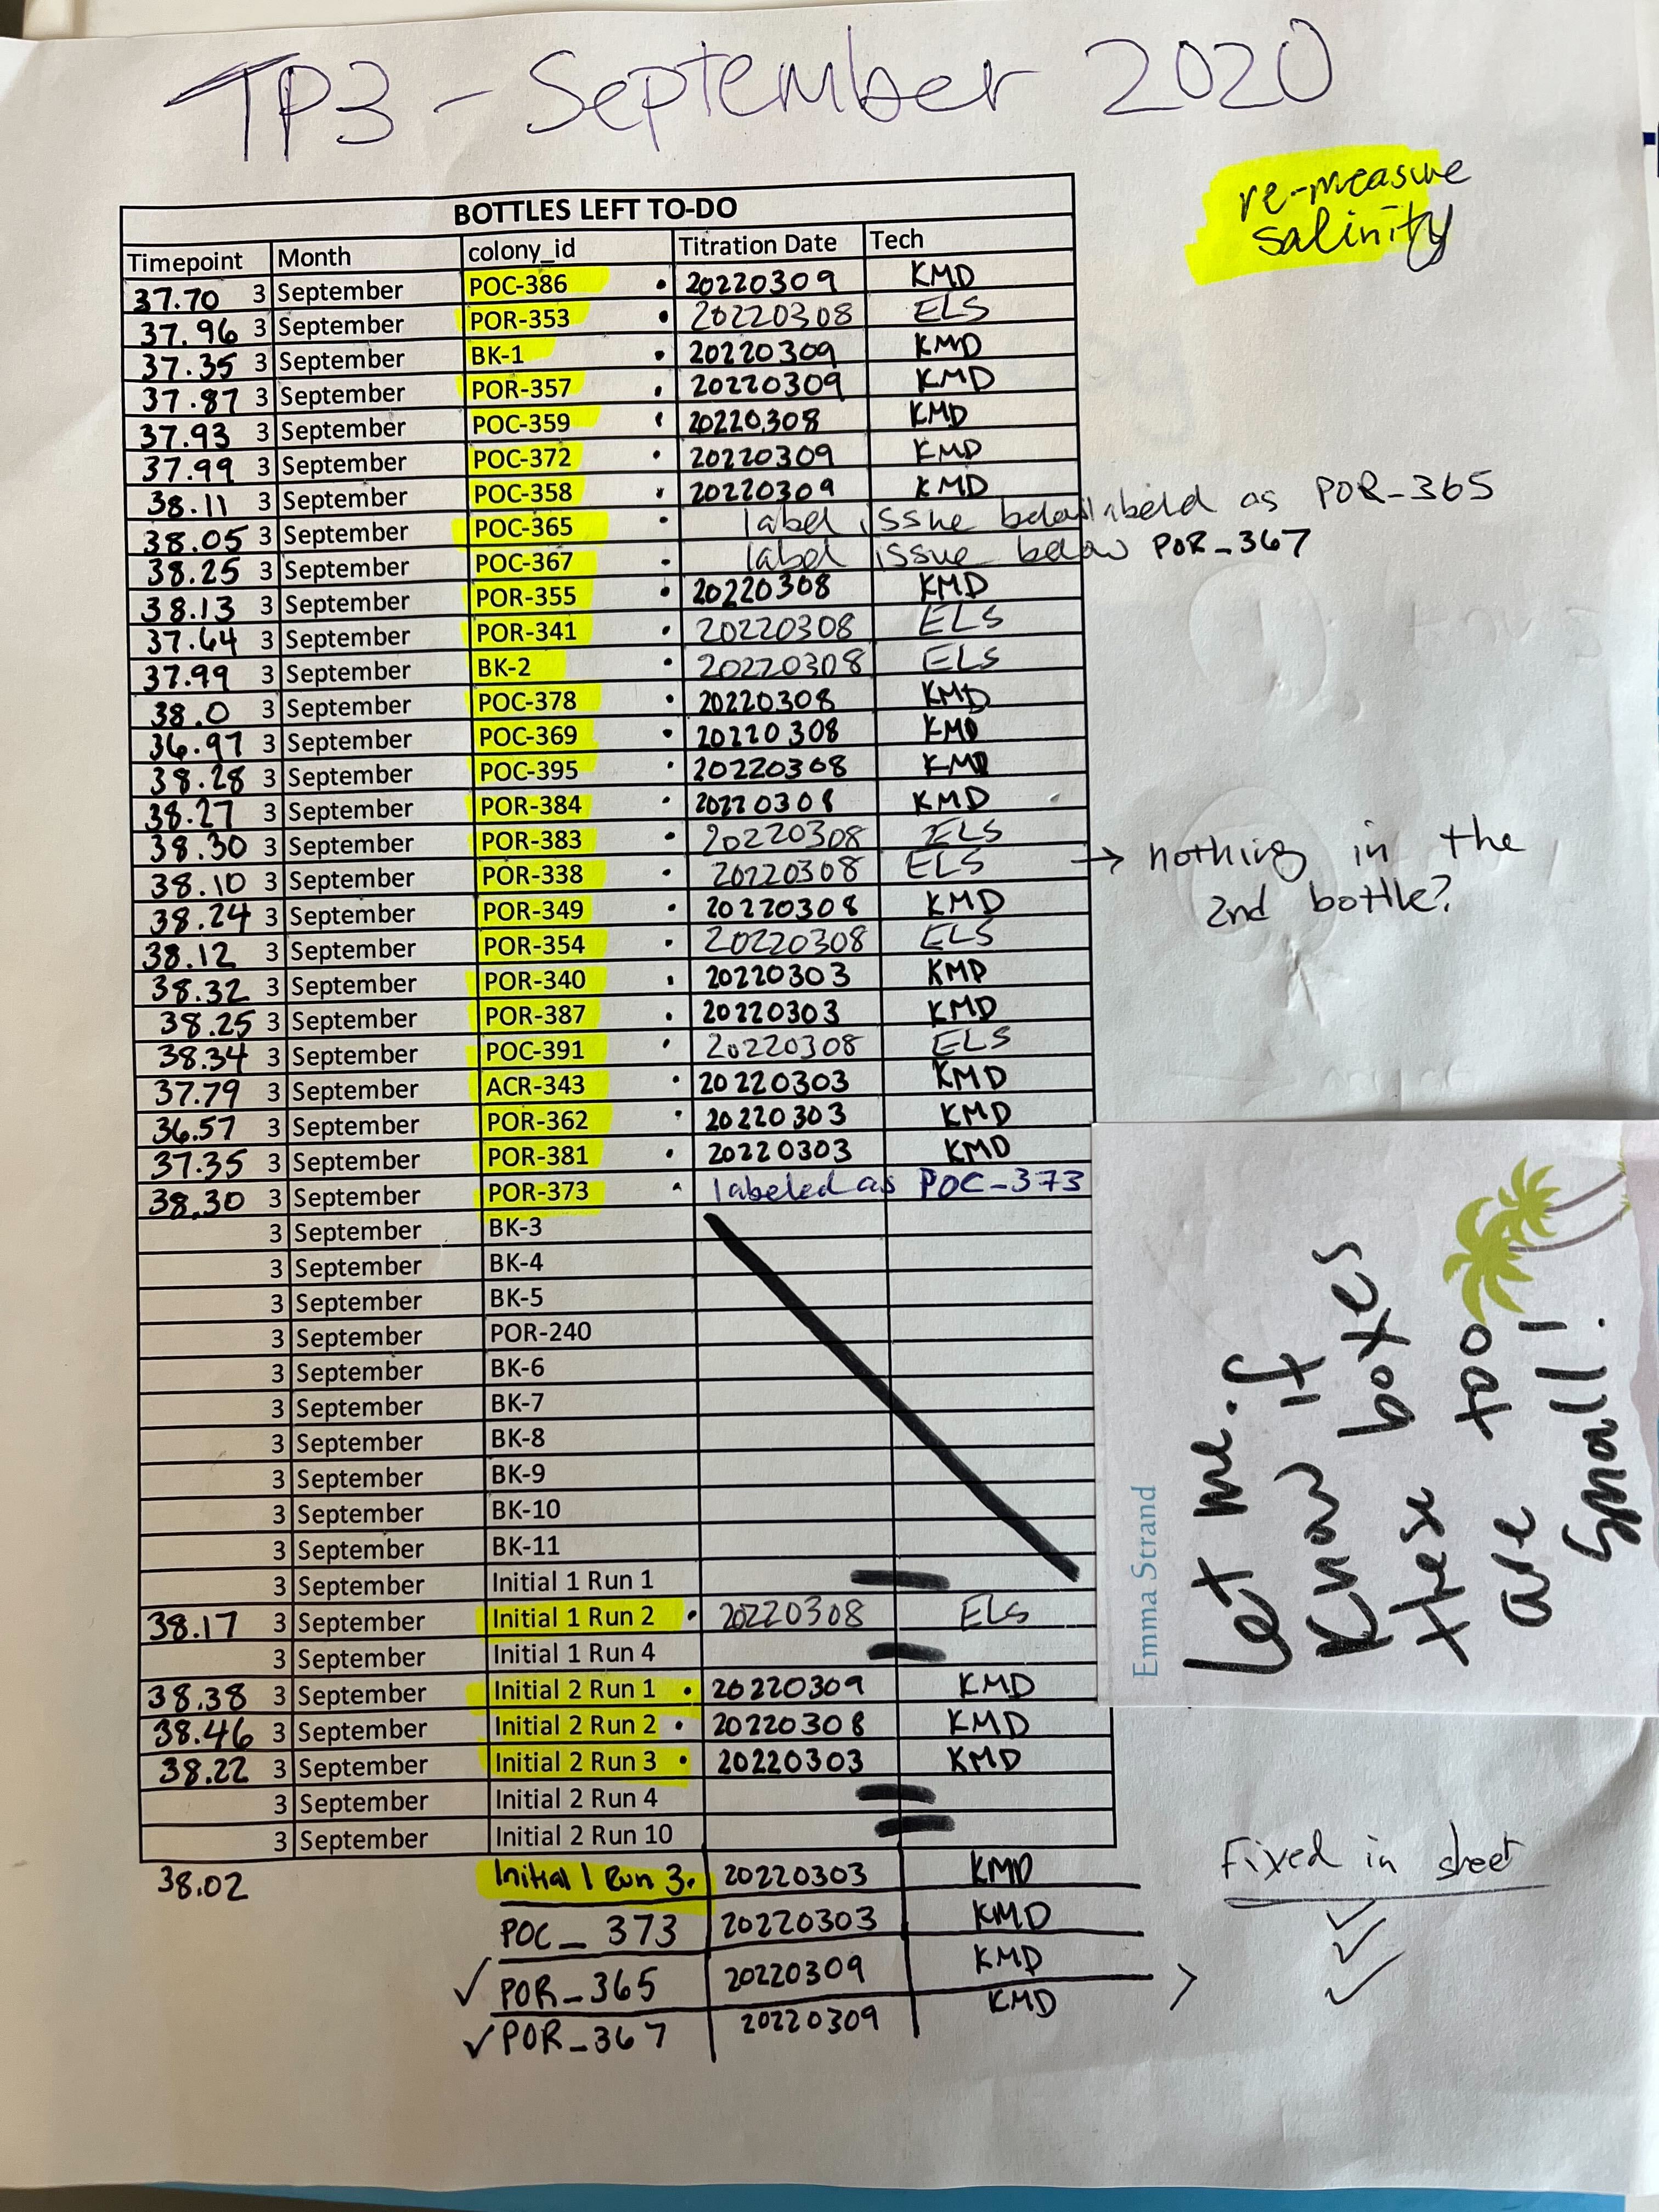 TP3 - September 2020
re-measure
salinity
BOTTLES LEFT TO-DO
Timepoint Month colony_id Titration Date Tech
37.70 3 September POC-386 • 20220309 KMD
37.96 3 September POR-353 • 20220308 ELS
37.35 3 September BK-1 • 20220309 KMD
37.87 3 September POR-357 • 20220309 KMD
37.93 3 September POC-359 • 20220308 KMD
37.99 3 September POC-372 • 20220309 KMD
38.11 3 September POC-358 • 20220309 KMD
38.05 3 September POC-365 • label issue below labeld as POR-365
38.25 3 September POC-367 • label issue below POR-367
38.13 3 September POR-355 • 20220308 KMD
37.64 3 September POR-341 • 20220308 ELS
37.99 3 September BK-2 • 20220308 ELS
38.0 3 September POC-378 • 20220308 KMD
36.97 3 September POC-369 • 20220308 KMD
38.28 3 September POC-395 • 20220308 KMD
38.27 3 September POR-384 • 20220308 KMD
38.30 3 September POR-383 • 20220308 ELS
38.10 3 September POR-338 • 20220308 ELS → nothing in the
2nd bottle?
38.24 3 September POR-349 • 20220308 KMD
38.12 3 September POR-354 • 20220308 ELS
38.32 3 September POR-340 • 20220303 KMD
38.25 3 September POR-387 • 20220303 KMD
38.34 3 September POC-391 • 20220308 ELS
37.79 3 September ACR-343 • 20220303 KMD
36.57 3 September POR-362 • 20220303 KMD
37.35 3 September POR-381 • 20220303 KMD
38.30 3 September POR-373 • labeled as POC-373
3 September BK-3
3 September BK-4
3 September BK-5
3 September POR-240
3 September BK-6
3 September BK-7
3 September BK-8
3 September BK-9
3 September BK-10
3 September BK-11
3 September Initial 1 Run 1
38.17 3 September Initial 1 Run 2 • 20220308 ELS
3 September Initial 1 Run 4
38.38 3 September Initial 2 Run 1 • 20220309 KMD
38.46 3 September Initial 2 Run 2 • 20220308 KMD
38.22 3 September Initial 2 Run 3 • 20220303 KMD
3 September Initial 2 Run 4
3 September Initial 2 Run 10
38.02 Initial 1 Run 3 • 20220303 KMD
POC_373 20220303 KMD
✓ POR_365 20220309 KMD
✓ POR_367 20220309 KMD
> Fixed in sheet
✓
✓
✓
Emma Strand
Let me
Know if
these boxes
are too
small!